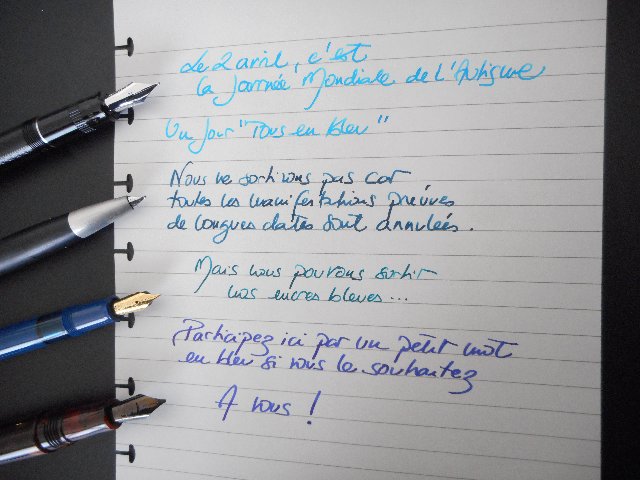 Le 2 avril, c'est
la Journée Mondiale de l'Autisme
Un jour "Tous en bleu"
Nous ne sortirons pas car
toutes les manifestations prévues
de longues dates sont annulées.
Mais nous pouvons sortir
nos encres bleues...
Participez ici par un petit mot
en bleu si vous le souhaitez
A vous !